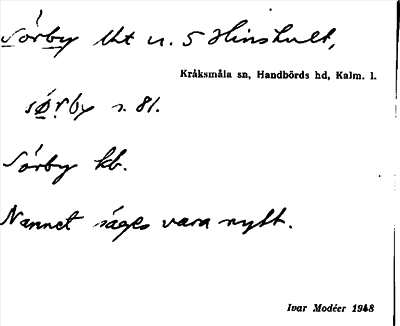 Sörby tht u. 5 Hinshult,
Kråksmåla sn, Handbörds hd, Kalm. l.
sǿrby s. 81.
Sörby kb.
Namnet säges vara nytt.
Ivar Modéer 1948